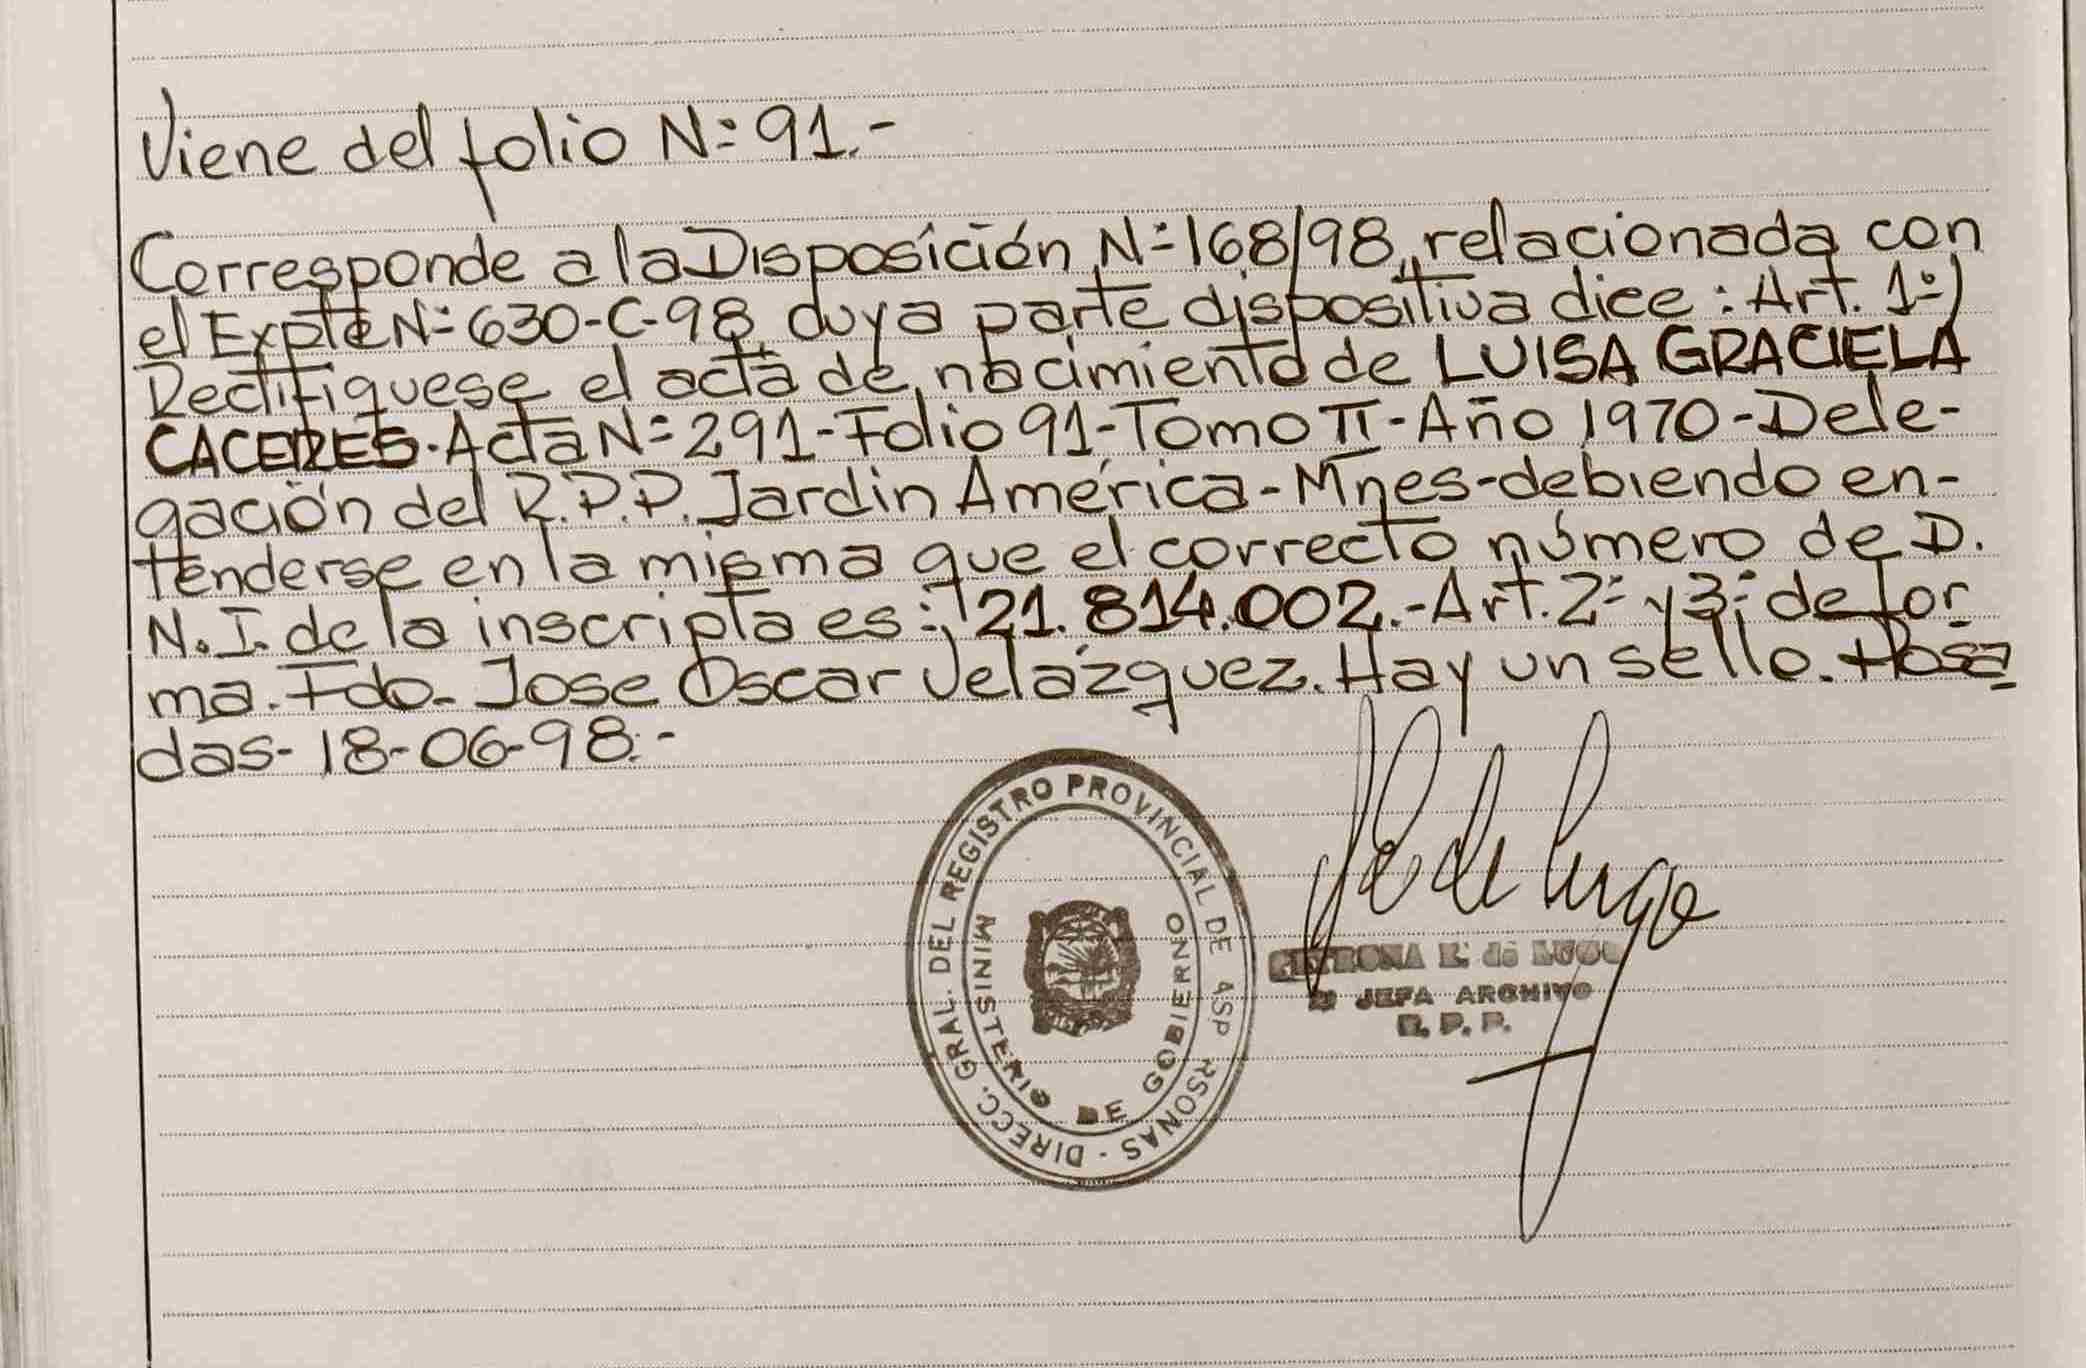 Viene del folio N=91.-
Corresponde a la Disposición N=168/98, relacionada con
el Expte N=630-C-98, cuya parte dispositiva dice: Art. 1º)
Rectifíquese el acta de nacimiento de LUISA GRACIELA
CACERES. Acta N=291-Folio 91-Tomo II-Año 1970-Dele-
gación del R.P.P. Jardín América-Mnes-debiendo en-
tenderse en la misma que el correcto número de D.
N.I. de la inscripta es: 21.814.002.-Art. 2= y 3= de for
ma. Fdo. Jose Oscar Velazquez. Hay un sello. Posa
das-18-06-98.-
DIRECC. GRAL. DEL REGISTRO PROVINCIAL DE
RSONAS
MINISTERIO DE GOBIERNO
de Lugo
JEFA ARCHIVO
R. P. P.